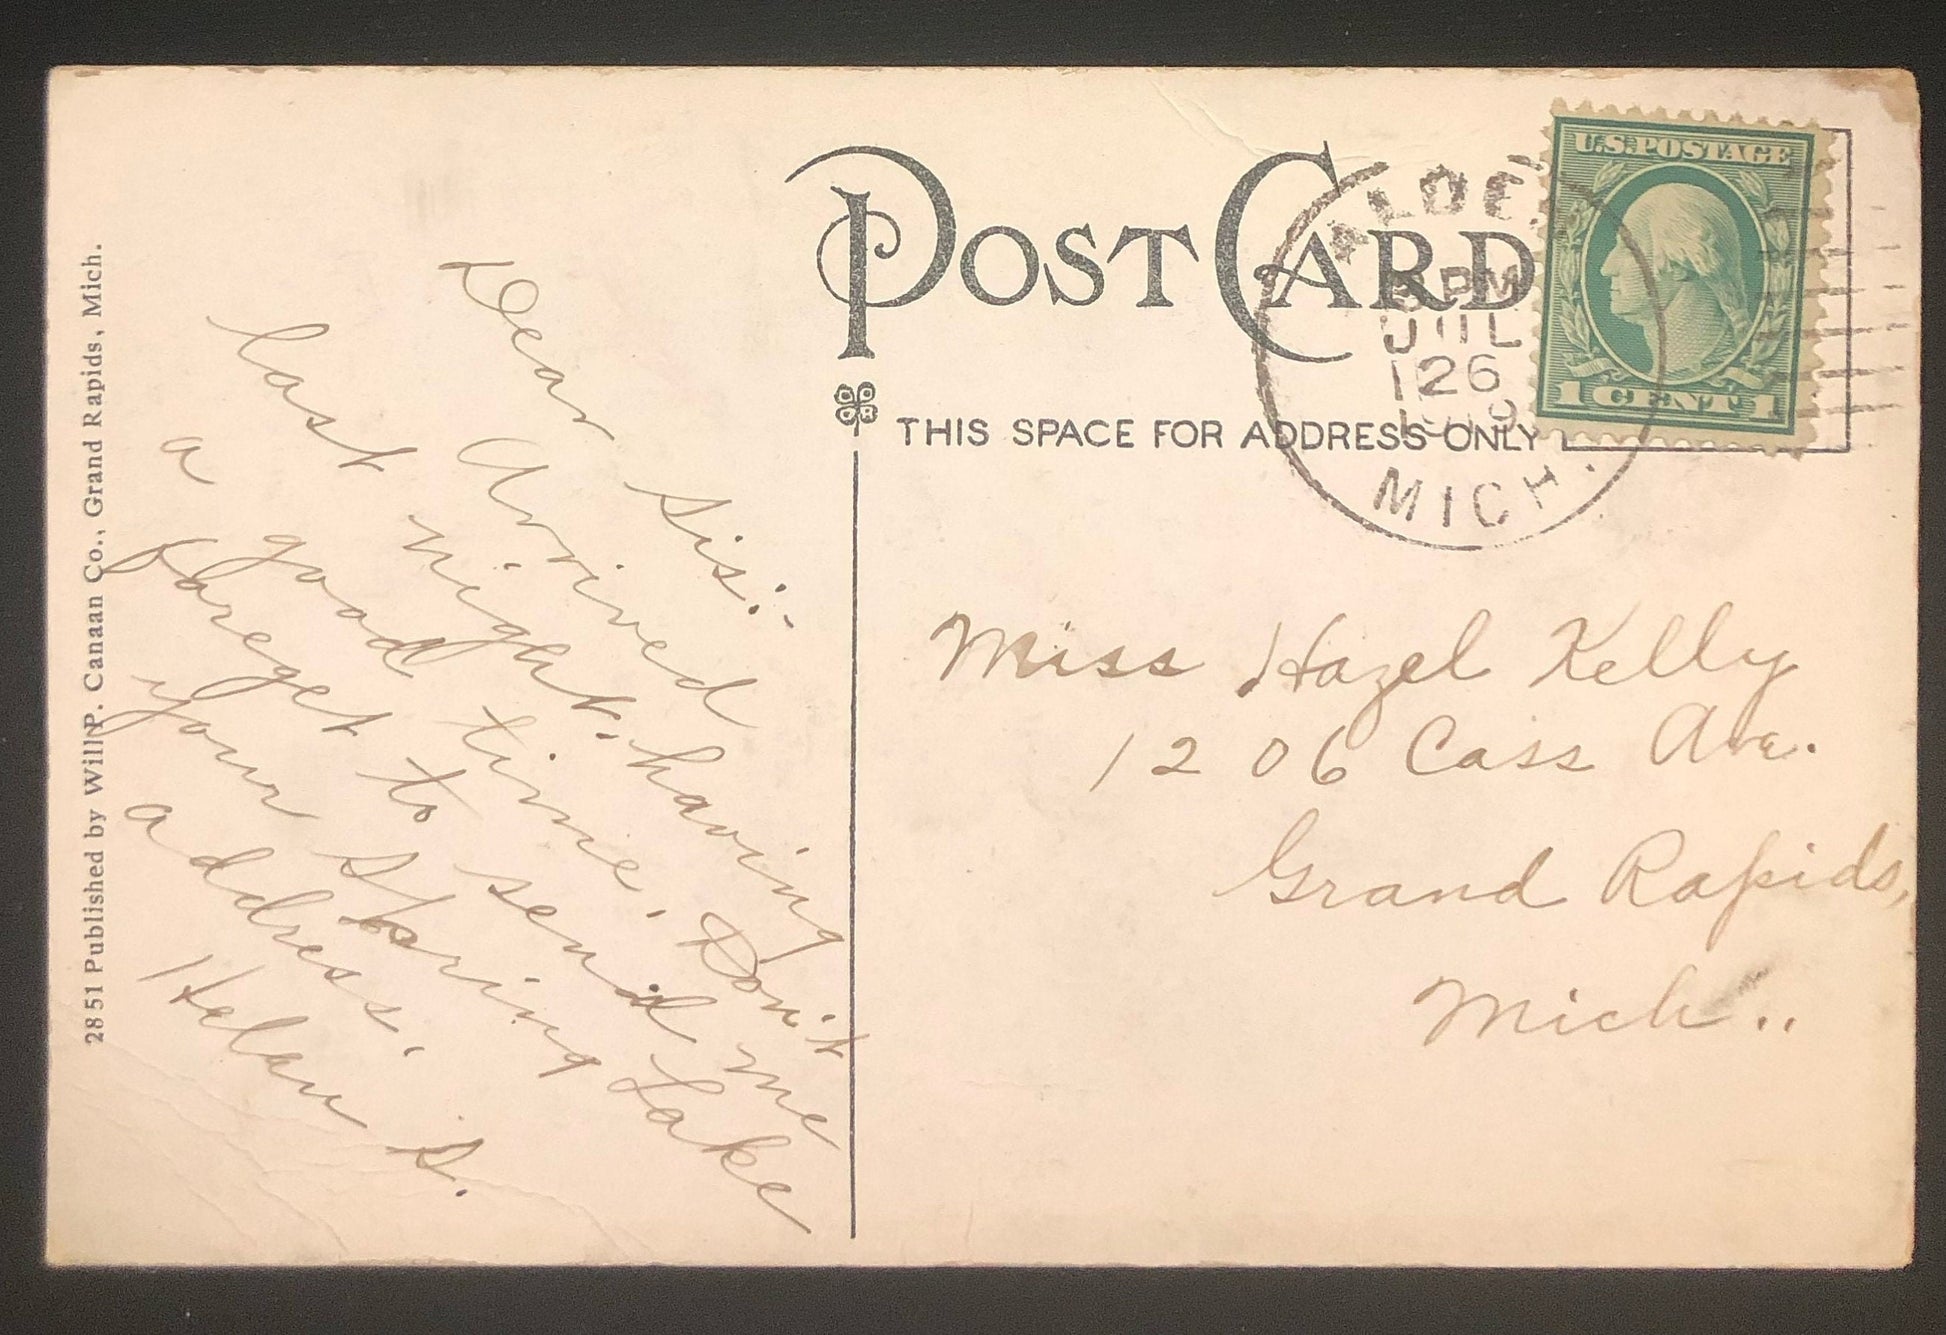 POST CARD
THIS SPACE FOR ADDRESS ONLY
U.S. POSTAGE
1 CENT 1
PM
JUL
26
MICH.
Dear Sis:-
Arrived
last night. having
a good time. Don't
foreget to send me
your Spring Lake
address.
Helen S.
Miss Hazel Kelly
1206 Cass Ave.
Grand Rapids,
Mich..
2851 Published by Will P. Canaan Co., Grand Rapids, Mich.